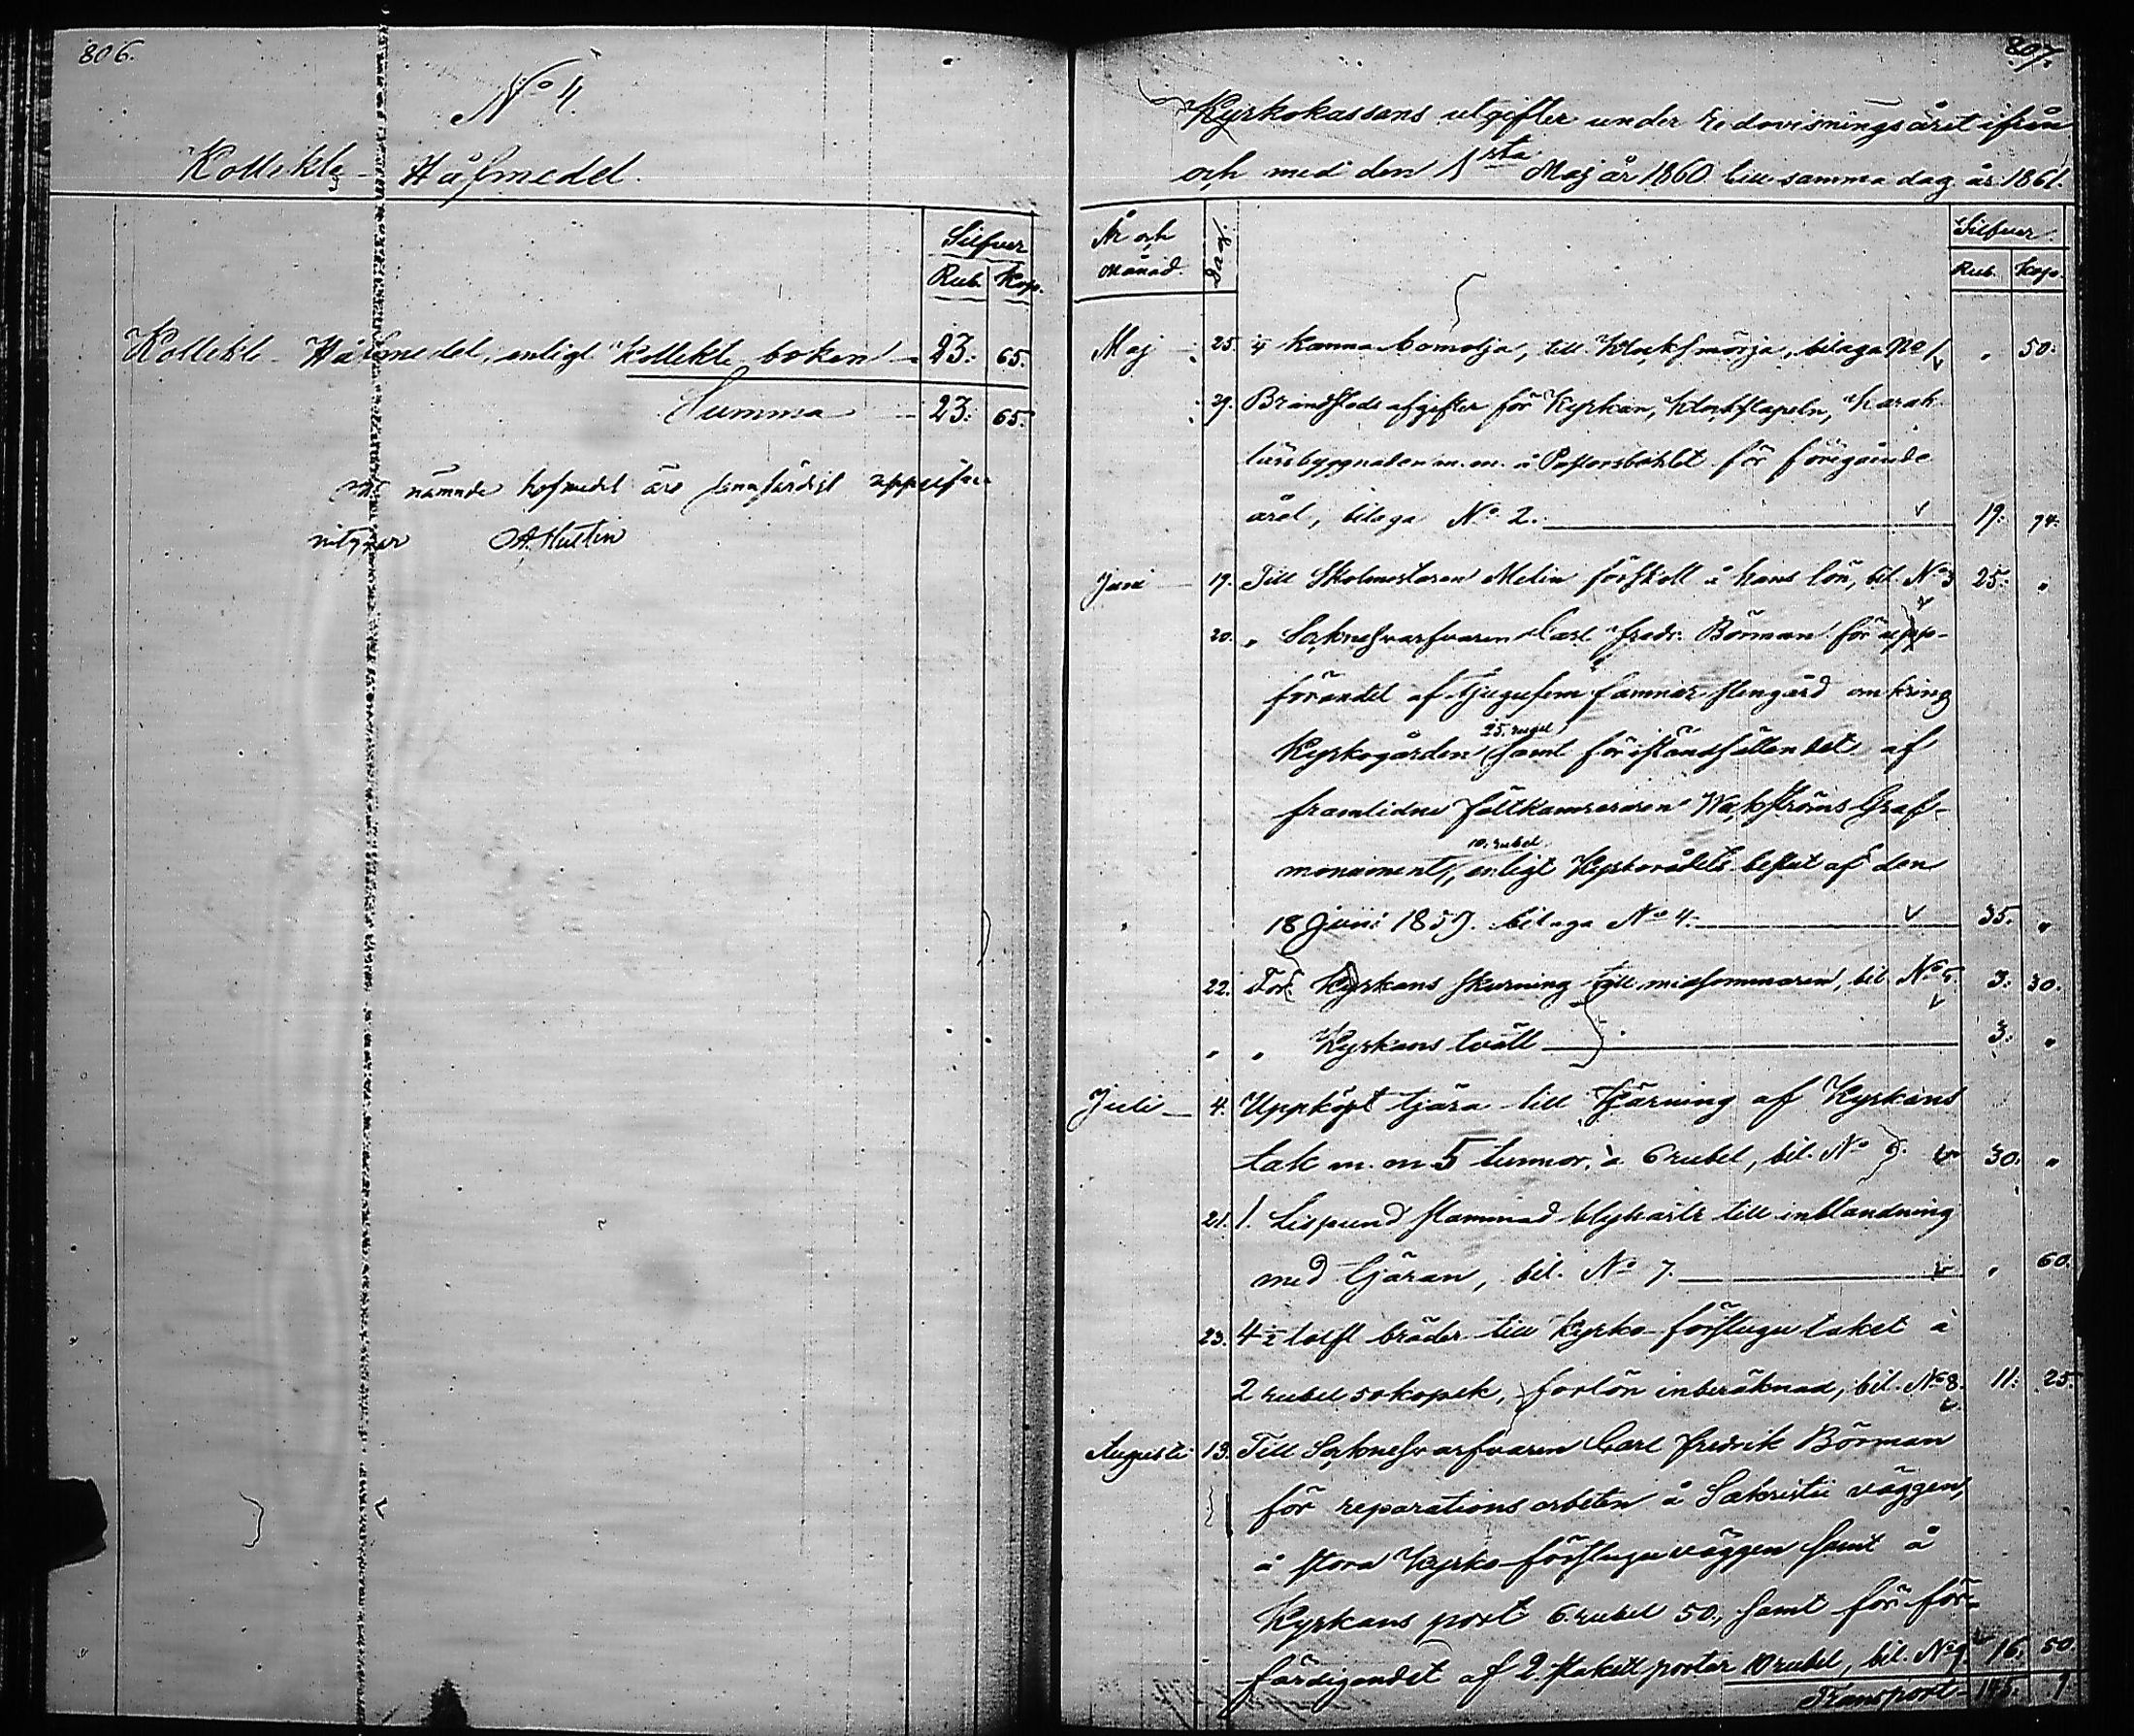 806.
No 4.
Kollekt - Håfmedel.
Silfver
Rub. Kop.
Kollekt - Håfmedel, enligt Kollekt boken 23: 65.
Summa 23: 65.
nämnde hofmedel äro uppgifne
intygar A. Hultin
807.
Kyrkokassans utgifter under Redovisningsåret ifrån
och med den 1sta Maj år 1860 till samma dag år 1861.
År och Månad. Dag. Silfver.
Rub. Kop.
Maj 25. kanna bomolja, till Klocksmörja, bilaga No 1 " 50:
29. Brandstods afgifter för Kyrkan, Klockstapeln, Karak-
tärsbyggnaden m. m. å Pastorsbohlet för föregående
året, bilaga No 2. 19: 94.
Juni 19. Till Skolmästaren Melin förskott å hans lön, bil. No 3 25: "
20. " Socknesvarfvaren Carl Fredr. Börman för upp-
förandet af tjugufem famnar stengård omkring
Kyrkogården 25 rubel samt för iståndsättandet af
framlidne fältkamreraren Wahlströms Graf-
monument, 10 rubel enligt Kyrkorådets beslut af den
18 Juni 1859. bilaga No 4. 35. "
22. För Kyrkans skurning till midsommaren, bil No 5 3: 30.
" " Kyrkans tvätt 3: "
Juli 4. Uppköpt tjära till tjärning af Kyrkans
tak m. m 5 tunnor, à 6 rubel, bil. No 6. 30. "
21. 1. Lispund slammad blyharts till inblandning
med tjäran, bil. No 7. " 60.
23. 4 ½ tolft bräder till Kyrko-förstugu taket à
2 rubel 50 kopek, forlön inberäknad, bil. No 8. 11: 25.
Augusti 13. Till Socknesvarfvaren Carl Fredrik Börman
för reparations arbeten å Sakristie väggen,
å stora Kyrko-förstugu väggen samt å
Kyrkans port 6 rubel 50, samt för för-
färdigandet af 2. stakett portar 10 rubel, bil. No 9. 16. 50.
Transport 145. 9